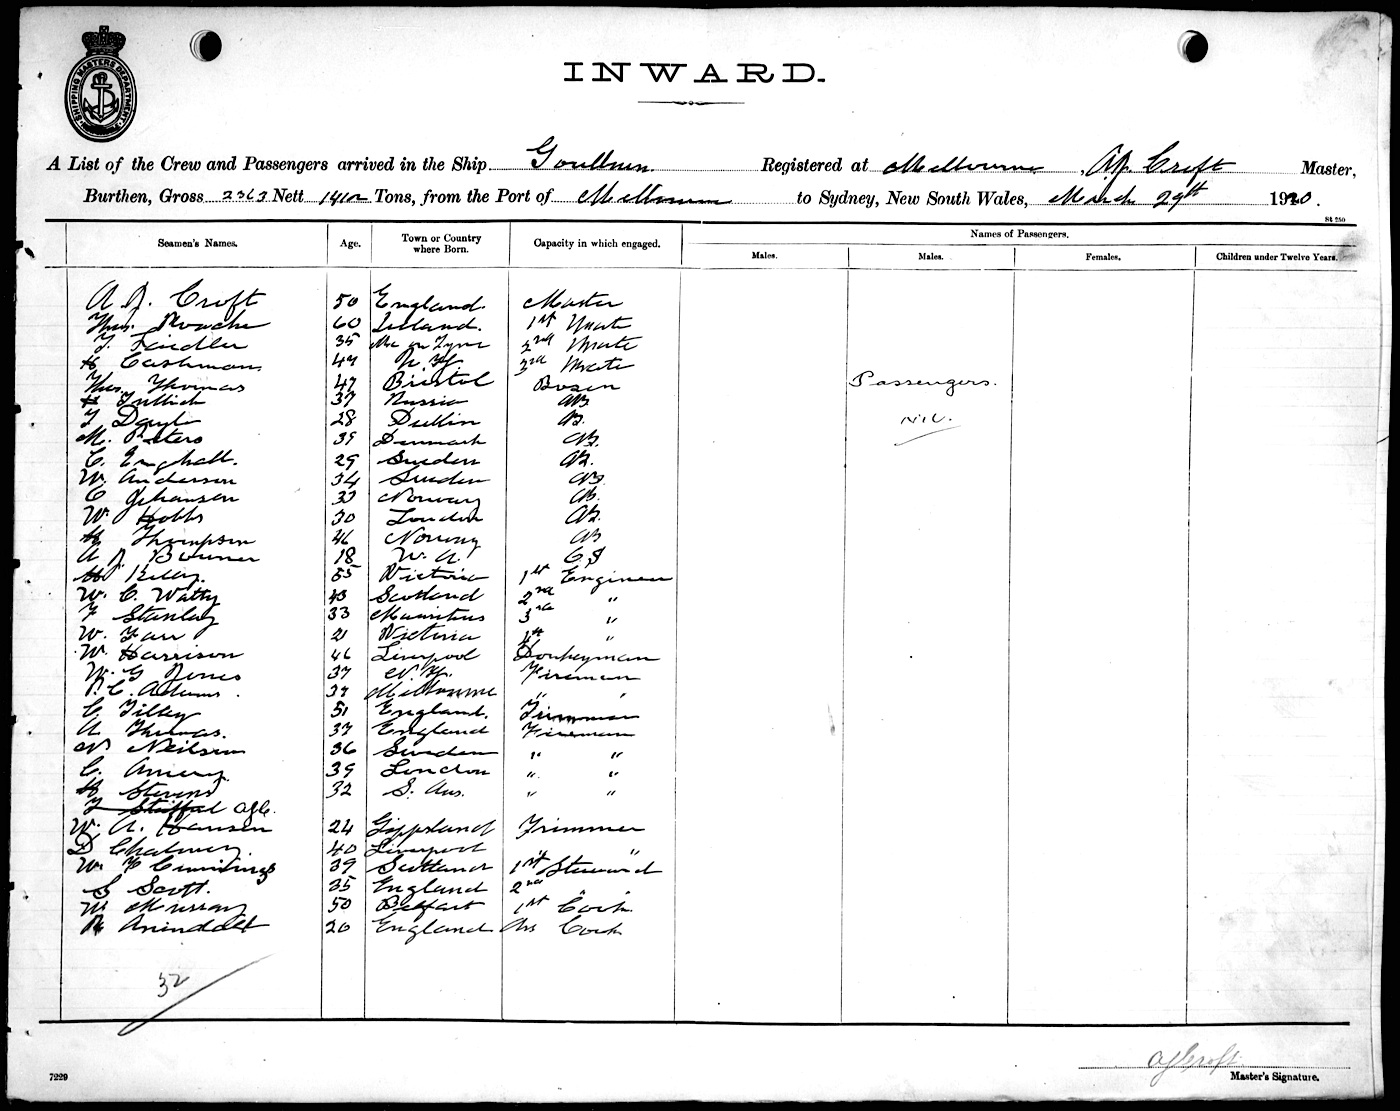 SHIPPING MASTERS DEPARTMENT
INWARD.
A List of the Crew and Passengers arrived in the Ship Goulburn Registered at Melbourne, A.J. Croft Master,
Burthen, Gross 2363 Nett 1412 Tons, from the Port of Melbourne to Sydney, New South Wales, March 29th 1920.
St 250
Seamen's Names. Age. Town or Country where Born. Capacity in which engaged. Names of Passengers.
Males. Males. Females. Children under Twelve Years.
A J. Croft 50 England. Master
Thos. Roache 60 Ireland. 1st Mate
Fiedler 35 on Tyne 2nd Mate
H Cashman 47 N. Z. 3rd Mate
Thos. Thomas 47 Bristol Bosun Passengers.
37 Russia AB
J Doyle 28 Dublin AB. Nil.
M. Peters 39 Denmark AB.
C. Enghall. 29 Sweden AB.
W. Anderson 34 Sweden AB
C Johansen 33 Norway AB.
W. Hobbs 30 London AB.
H Thompson 46 Norway AB
A J. Bonner 18 W. A.
H Kelly. 55 Victoria 1st Engineer
W. C. Watty 43 Scotland 2nd "
F Stanley 33 Mauritius 3rd "
W. Farr 21 Victoria 4th "
W. Harrison 46 Liverpool Donkeyman
W. G Jones 37 N. Z. Fireman
C. Adams. 37 Melbourne " "
C. Tilley 51 England. Trimmer
A Thomas. 37 England Fireman
N Neilsen 36 Sweden " "
C. Amery 39 London " "
H Stevens 32 S. Aus. " "
AJC.
W. A. Hansen 24 Gippsland Trimmer
D Chalmers. 40 Liverpool " "
W. F Cummings 39 Scotland 1st Steward
S Scott. 35 England 2nd
W. Murray 50 Belfast 1st Cook.
R 26 England Ass Cook
32
AJCroft
Master's Signature.
7229